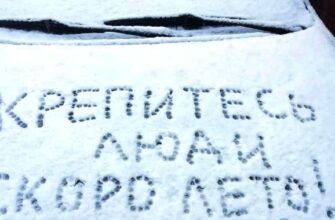 КРЕПИТЕСЬ
ЛЮДИ
СКОРО ЛЕТО!